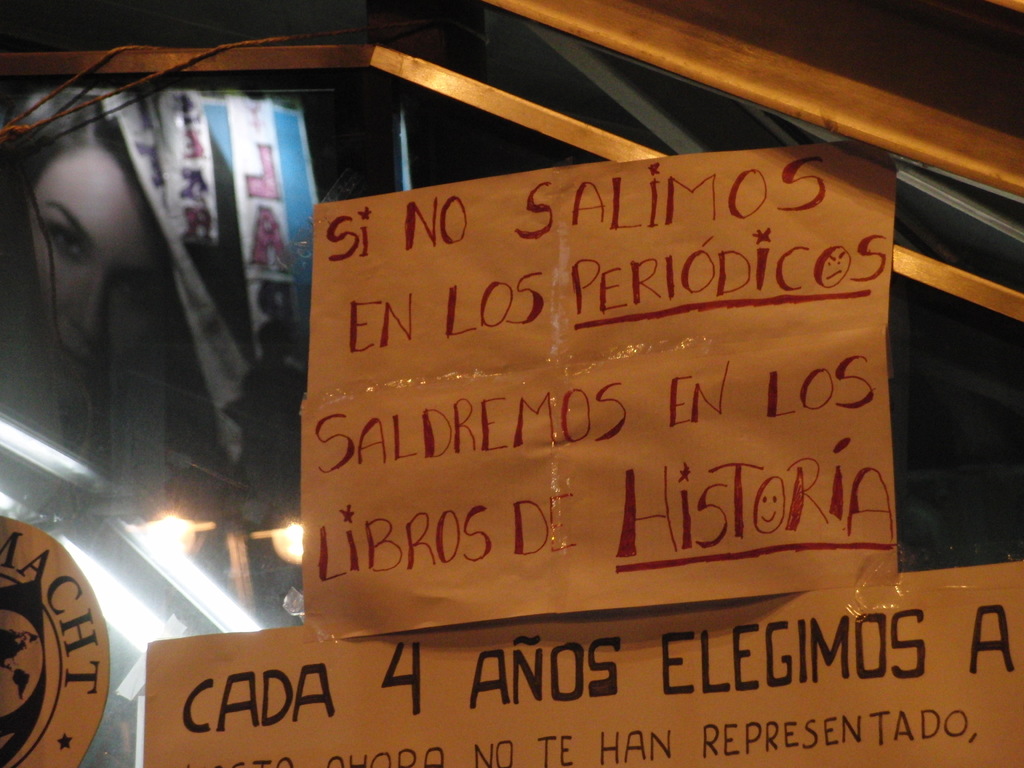 Si NO SALiMOS
EN LOS PERIÓDiCOS
SALDREMOS EN LOS
LiBROS DE HiSTORÍA
CADA 4 AÑOS ELEGIMOS A
AHORA NO TE HAN REPRESENTADO,
MACHT